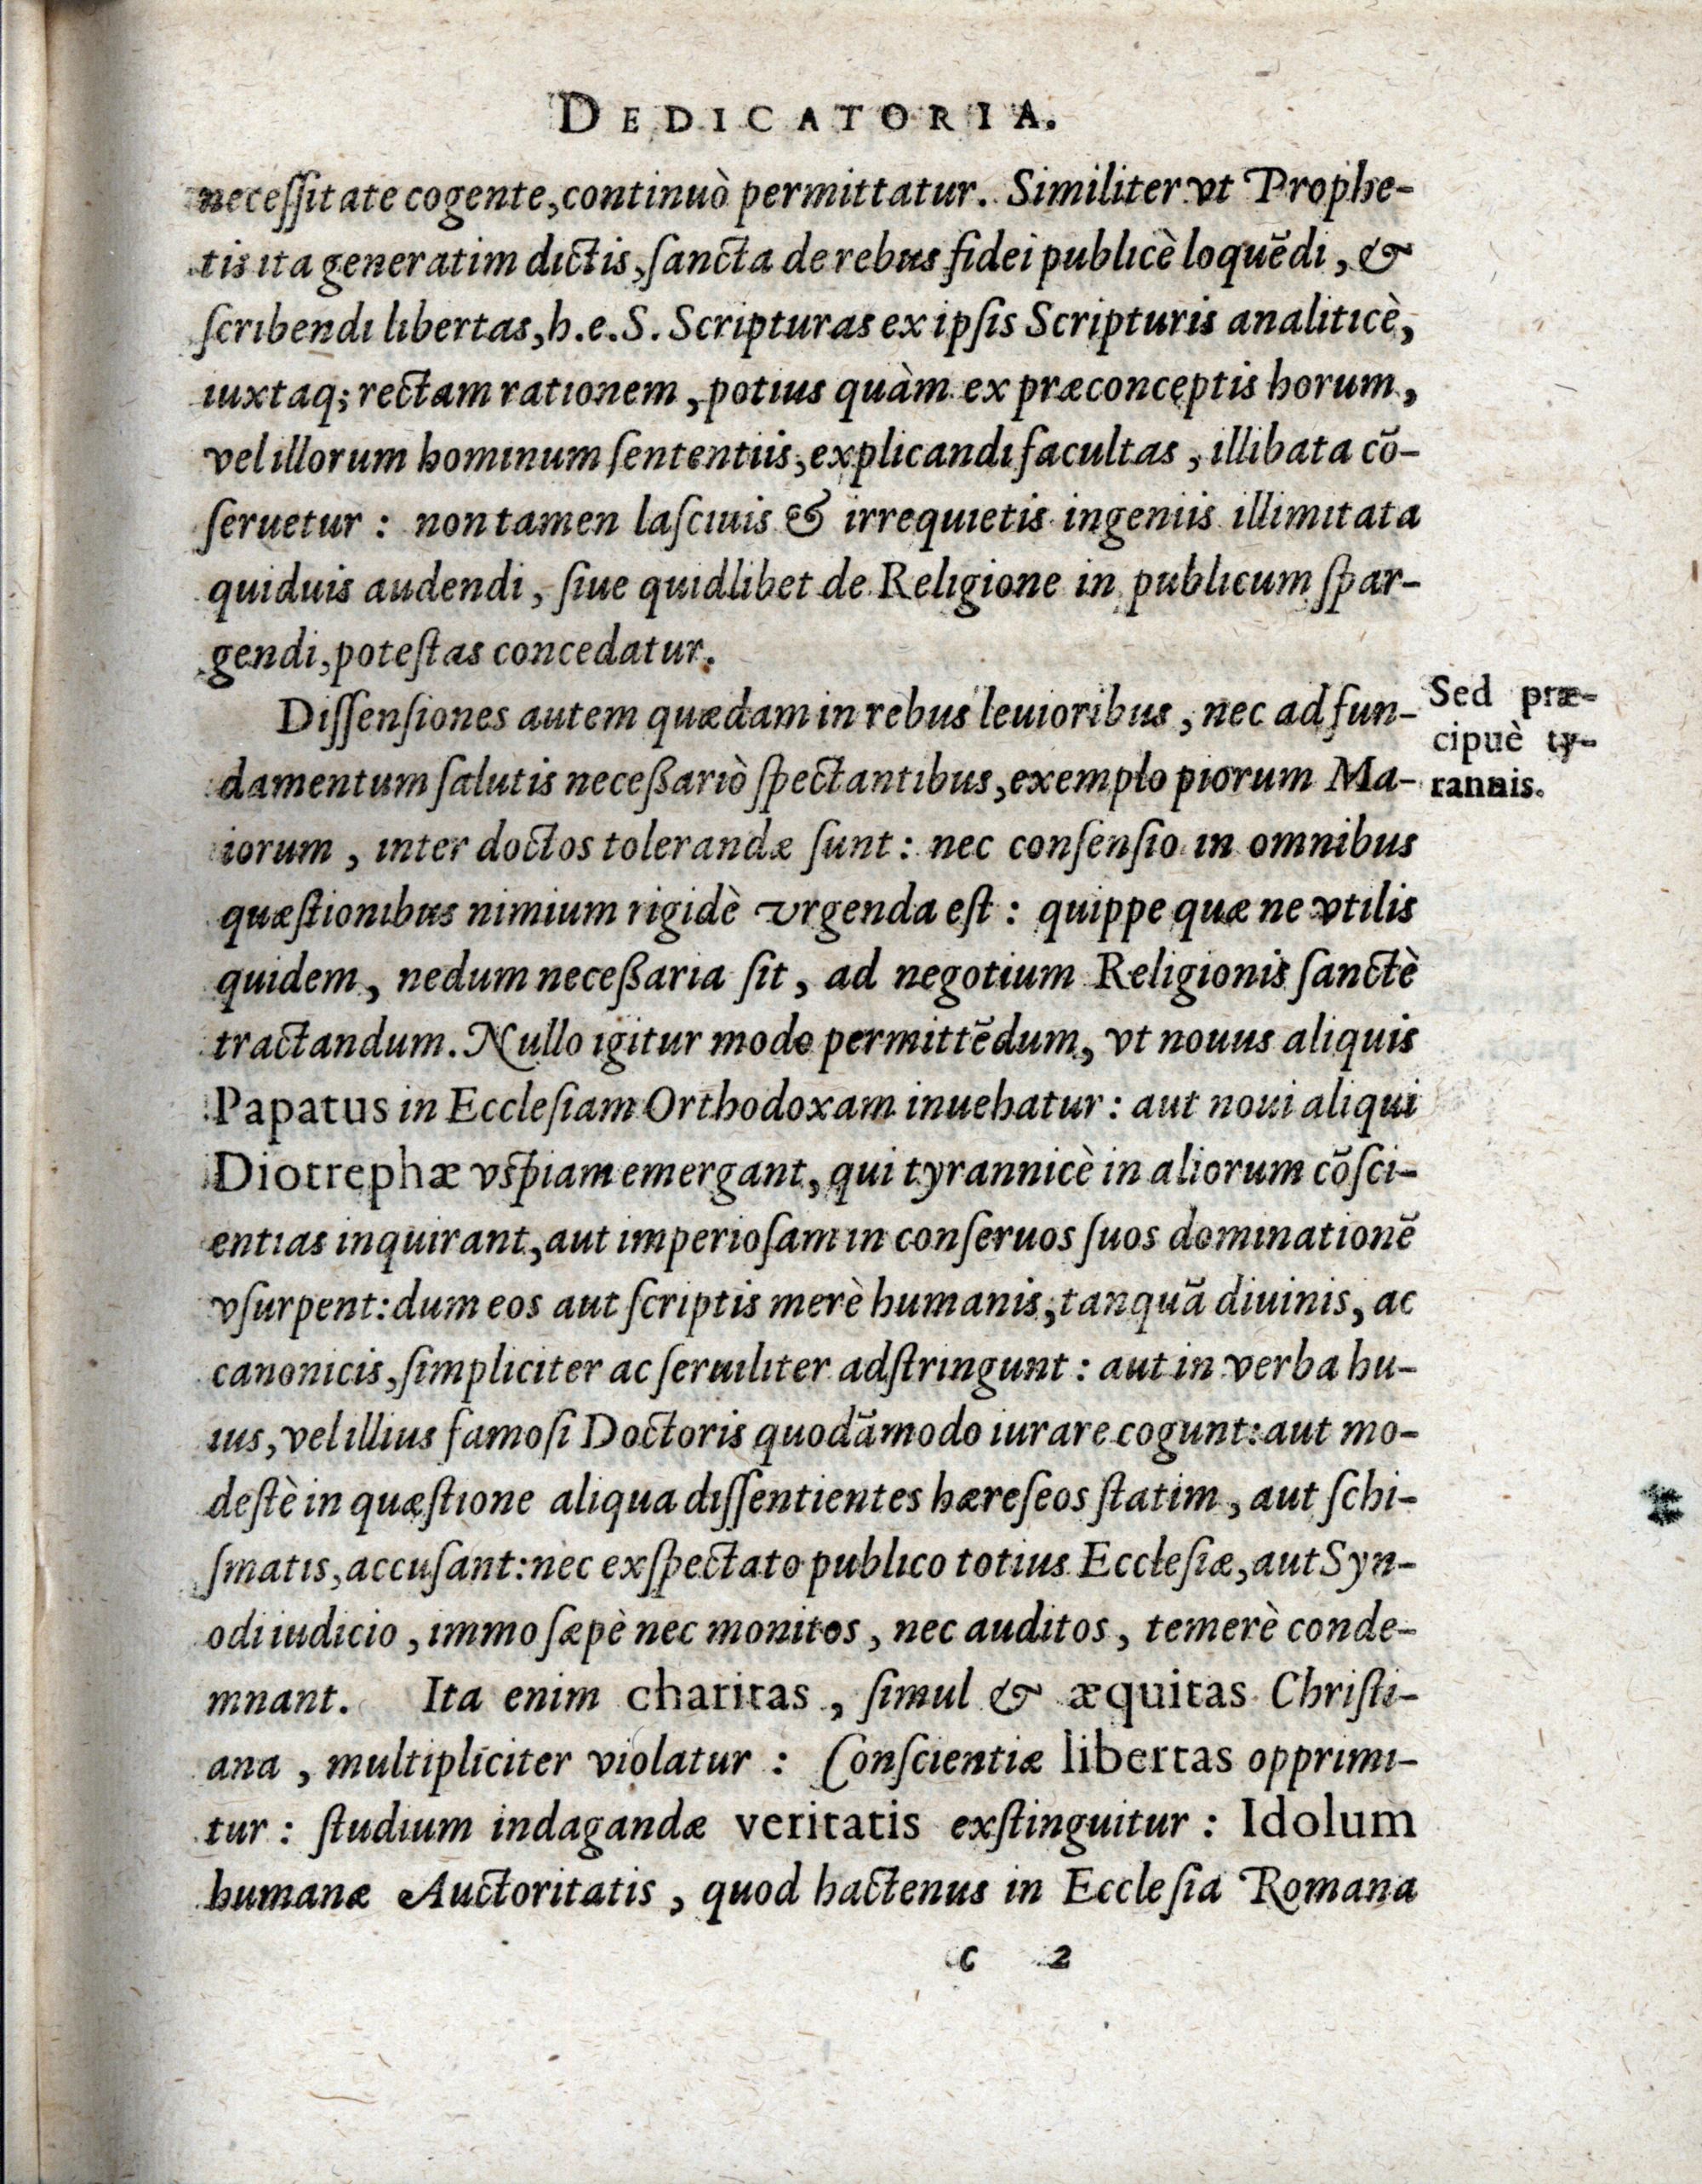 DEDICATORIA.
neceſſitate cogente, continuò permittatur. Similiter vt Prophe-
tis ita generatim dictis, ſancta de rebus fidei publicè loquēdi, &
ſcribendi libertas, h.e. S. Scripturas ex ipſis Scripturis analiticè,
iuxtaq; rectam rationem, potius quàm ex præconceptis horum,
vel illorum hominum ſententiis, explicandi facultas, illibata cō-
ſeruetur: non tamen laſciuis & irrequietis ingeniis illimitata
quiduis audendi, ſiue quidlibet de Religione in publicum ſpar-
gendi, poteſtas concedatur.
Diſſenſiones autem quædam in rebus leuioribus, nec ad fun-
Sed præ-
cipuè ty-
rannis.
damentum ſalutis neceßariò ſpectantibus, exemplo piorum Ma-
iorum, inter doctos tolerandæ ſunt: nec conſenſio in omnibus
quæſtionibus nimium rigidè vrgenda eſt: quippe quæ ne vtilis
quidem, nedum neceßaria ſit, ad negotium Religionis ſanctè
tractandum. Nullo igitur modo permittēdum, vt nouus aliquis
Papatus in Eccleſiam Orthodoxam inuehatur: aut noui aliqui
Diotrephæ vſpiam emergant, qui tyrannicè in aliorum cōſci-
entias inquirant, aut imperioſam in conſeruos ſuos dominationē
vſurpent: dum eos aut ſcriptis merè humanis, tanquā diuinis, ac
canonicis, ſimpliciter ac ſeruiliter adſtringunt: aut in verba hu-
ius, vel illius famoſi Doctoris quodāmodo iurare cogunt: aut mo-
deſtè in quæſtione aliqua diſſentientes hæreſeos ſtatim, aut ſchi-
ſmatis, accuſant: nec exſpectato publico totius Eccleſiæ, aut Syn-
odi iudicio, immo ſæpè nec monitos, nec auditos, temerè conde-
mnant. Ita enim charitas, ſimul & æquitas Chriſti-
ana, multipliciter violatur: Conſcientiæ libertas opprimi-
tur: ſtudium indagandæ veritatis exſtinguitur: Idolum
humanæ Auctoritatis, quod hactenus in Eccleſia Romana
c 2